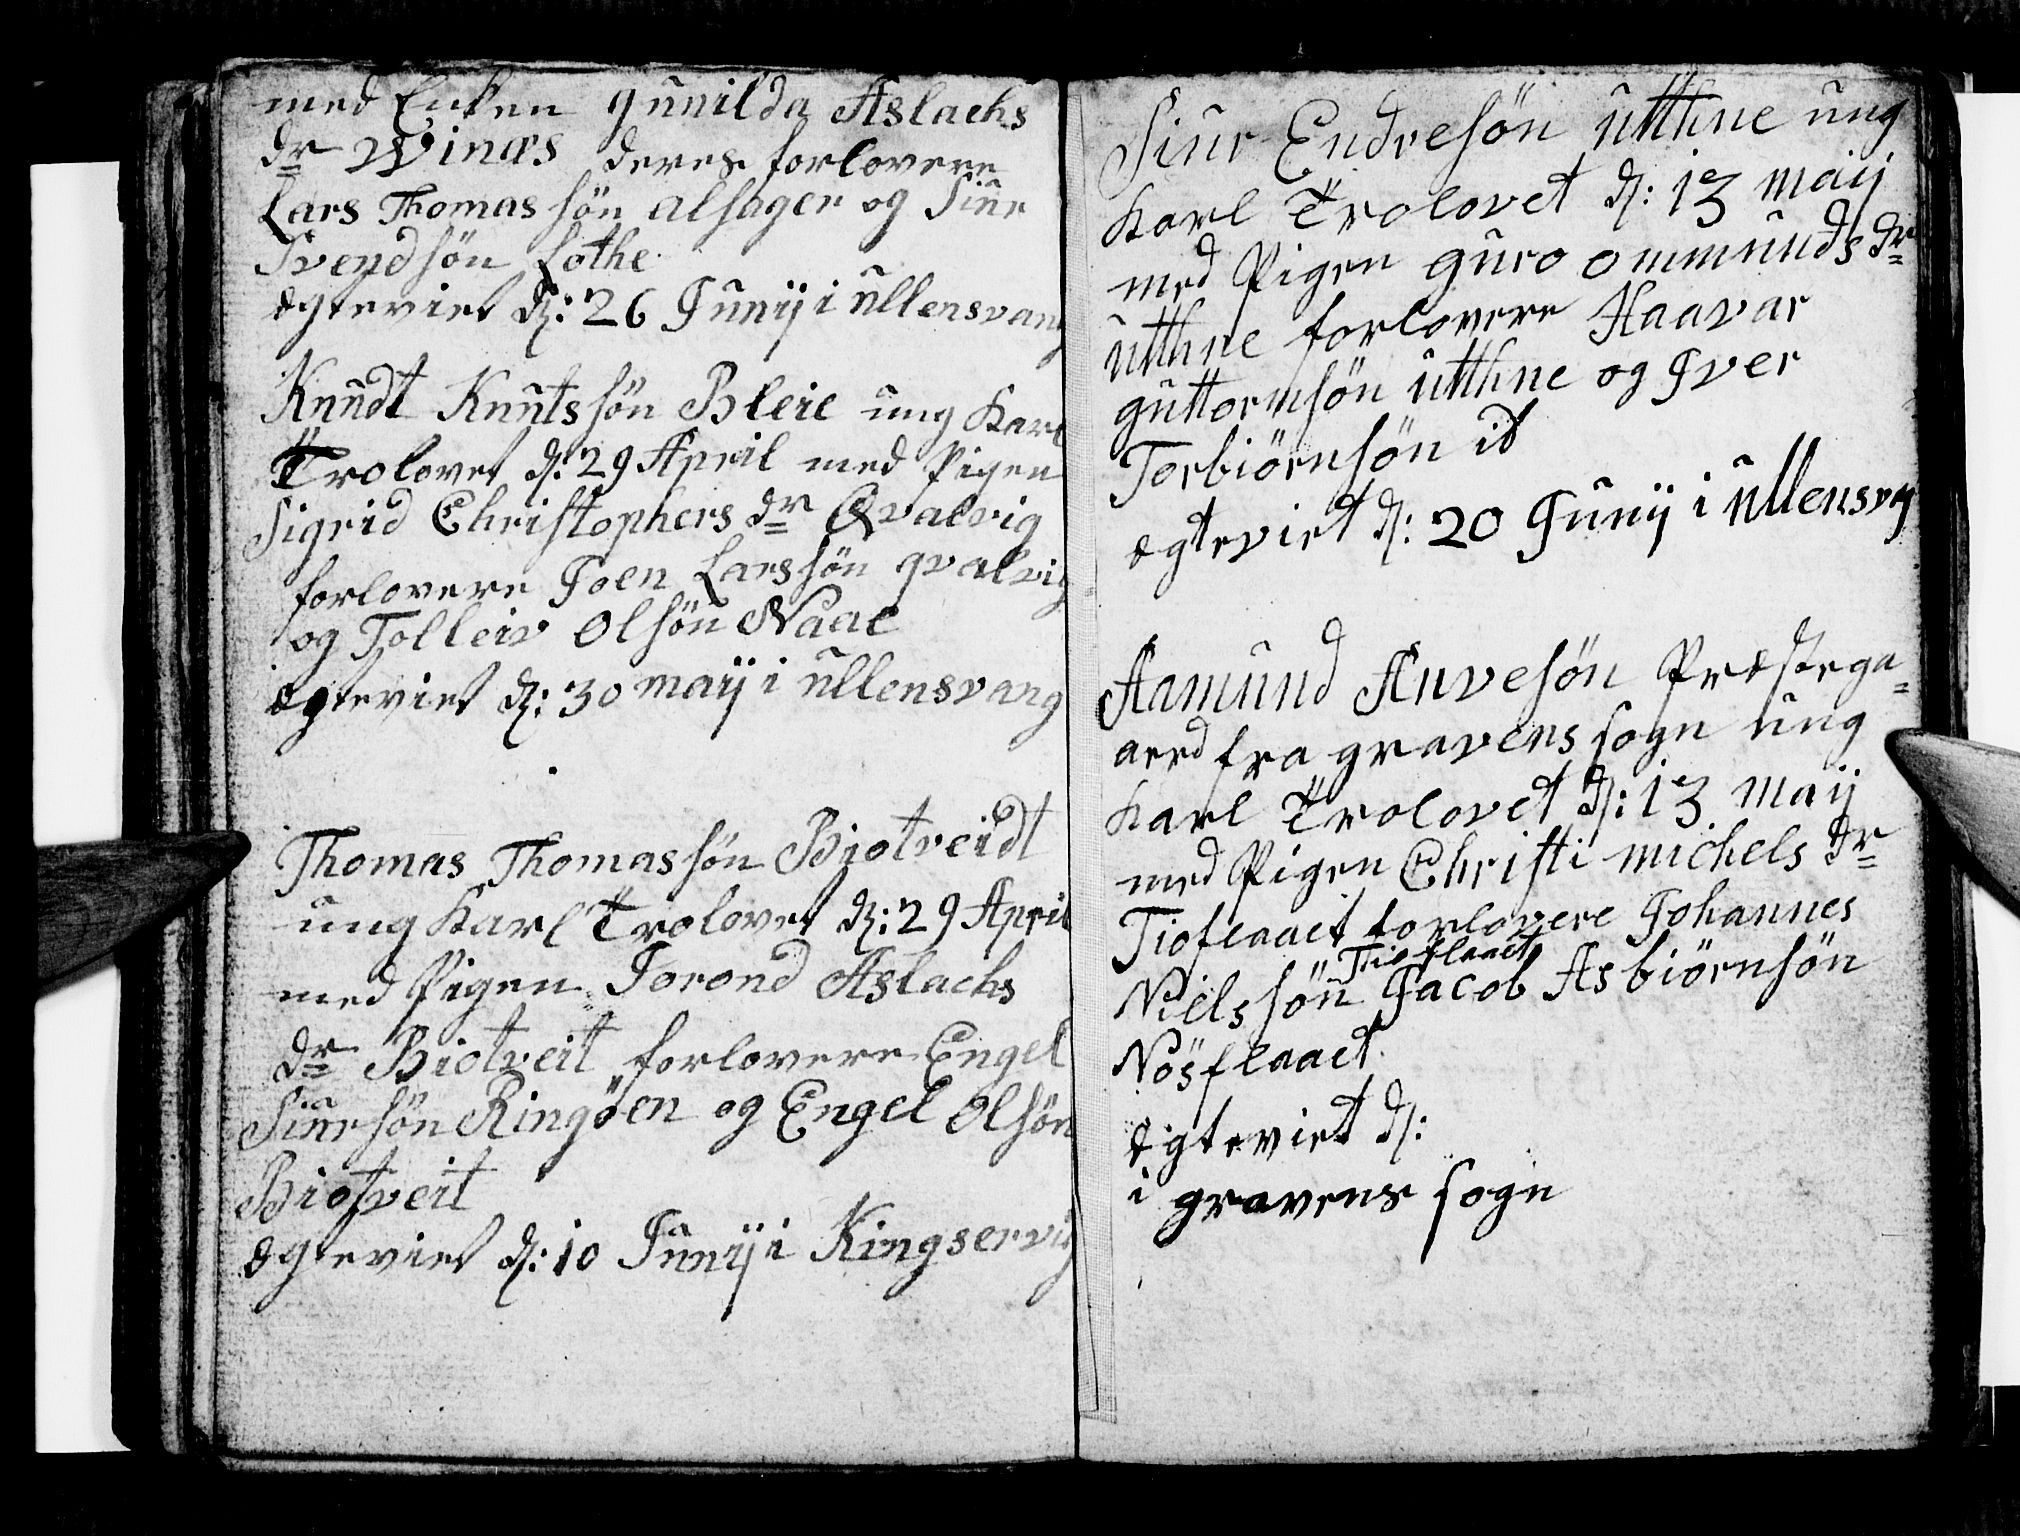 med Enken gunilda Aslachs
dr Winæs deres forlovere
Lars Thomassön alsager og Siur
Svendsön Lothe
ægteviet d: 26 Junij i ullensvang
Knudt Knutssön Bleie ung Karl
Trolovet d: 29 April med Pigen
Sigrid Christophers dr Qvalvig
forlovere Joen Larssön qvalvig
og Tolleiv Olsön Naae
ægteviet d: 30 maij i ullensvang
Thomas Thomassön Biotveidt
ung Karl Trolovet d: 29 April
med Pigen Jorond Aslachs
dr Biotveit forlovere Engel
Siursön Ringöen og Engel Olsön
Biotveit
ægteviet d: 10 Junij i Kingservig
Siur Endresön utthne ung
Karl Trolovet d: 13 maij
med Pigen guro ommunds dr
utthne forlovere Haavar
guttormsön utthne og Iver
Torbiörnsön id
ægteviet d: 20 Junij i ullensvg
Aamund Anvesön Præstega=
aerd fra gravens sogn ung
Karl Trolovet d: 13 maij
med Pigen Christi michels dr
Tioflaaet forlovere Johannes
Tioflaaet
Nielssön Jacob Asbiörnsön
Nösflaaet
ægteviet d:
i gravens sogn